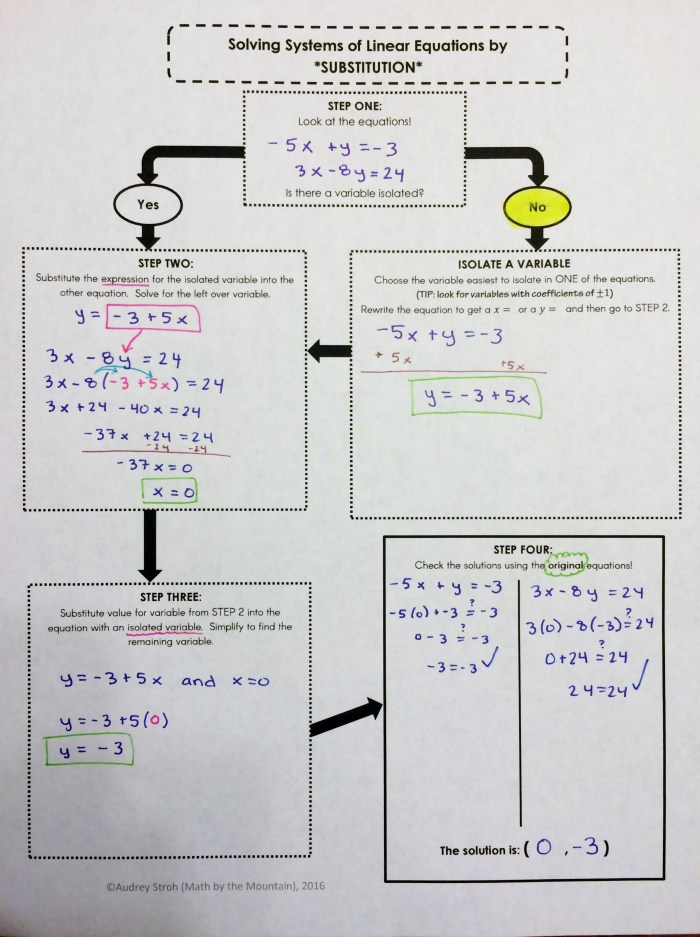 Solving Systems of Linear Equations by
*SUBSTITUTION*
STEP ONE:
Look at the equations!
- 5x + y = - 3
3x - 8y = 24
Is there a variable isolated?
Yes
No
ISOLATE A VARIABLE
Choose the variable easiest to isolate in ONE of the equations.
(TIP: look for variables with coefficients of ±1)
Rewrite the equation to get a x = or a y = and then go to STEP 2.
-5x + y = -3
+ 5x +5x
y = - 3 + 5x
STEP TWO:
Substitute the expression for the isolated variable into the
other equation. Solve for the left over variable.
y = - 3 + 5x
3x - 8y = 24
3x - 8(-3 + 5x) = 24
3x + 24 - 40x = 24
-37x + 24 = 24
-24 -24
-37x = 0
x = 0
STEP THREE:
Substitute value for variable from STEP 2 into the
equation with an isolated variable. Simplify to find the
remaining variable.
y = -3 + 5x and x = 0
y = -3 + 5(0)
y = - 3
STEP FOUR:
Check the solutions using the original equations!
-5x + y = -3
-5(0) + -3 ?= -3
0 - 3 ?= -3
-3 = -3 ✓
3x - 8y = 24
3(0) - 8(-3) ?= 24
0 + 24 ?= 24
24 = 24 ✓
The solution is: ( 0 , -3 )
©Audrey Stroh (Math by the Mountain), 2016